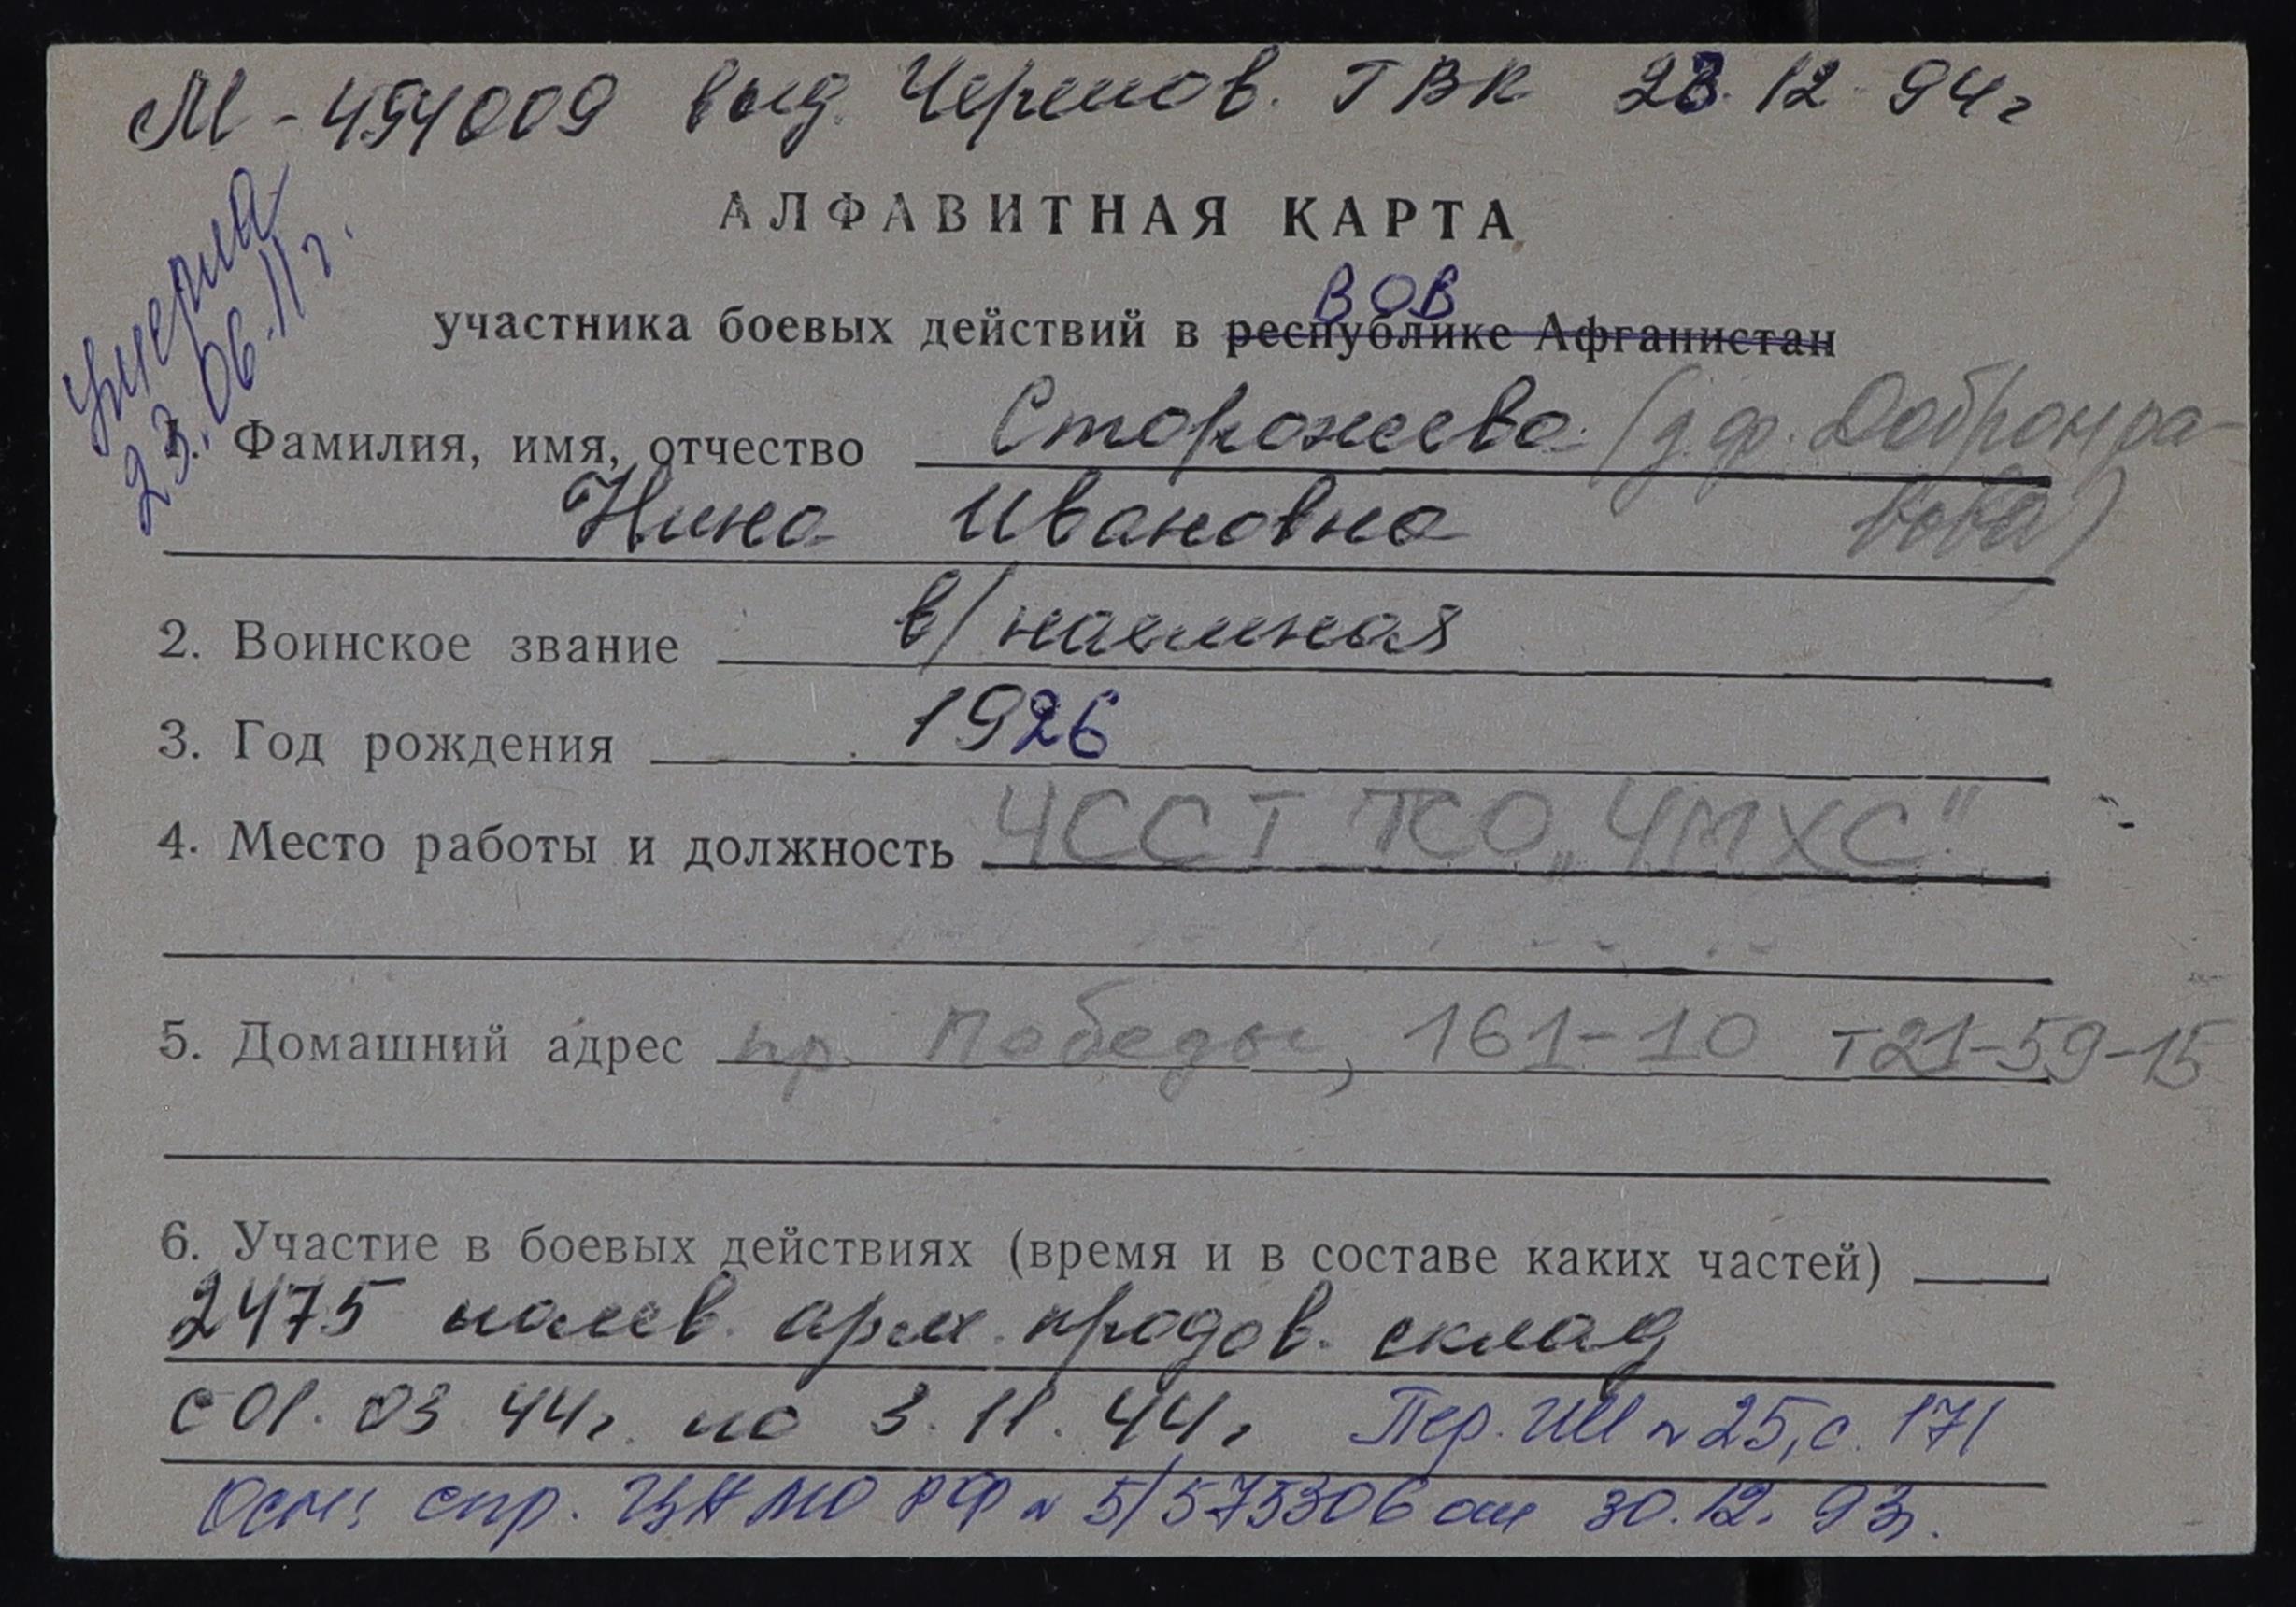 М-494009 выд. Черепов. ГВК 28.12.94г
умерла
23.06.11г.
АЛФАВИТНАЯ КАРТА
ВОВ
участника боевых действий в республике Афганистан
1. Фамилия, имя, отчество Сторожева (д.ф. Добронра-
Нина Ивановна вова)
2. Воинское звание в/наемная
3. Год рождения 1926
4. Место работы и должность ЧССТ ПО „ЧМХС"
5. Домашний адрес пр. Победы, 161-10 т 21-59-15
6. Участие в боевых действиях (время и в составе каких частей)
2475 полев. арм. продов. склад
с 01.03.44г. по 3.11.44г. Пер. ИМ №25, с. 171
Осн: спр. ЦАМО РФ № 5/575306 от 30.12.93г.